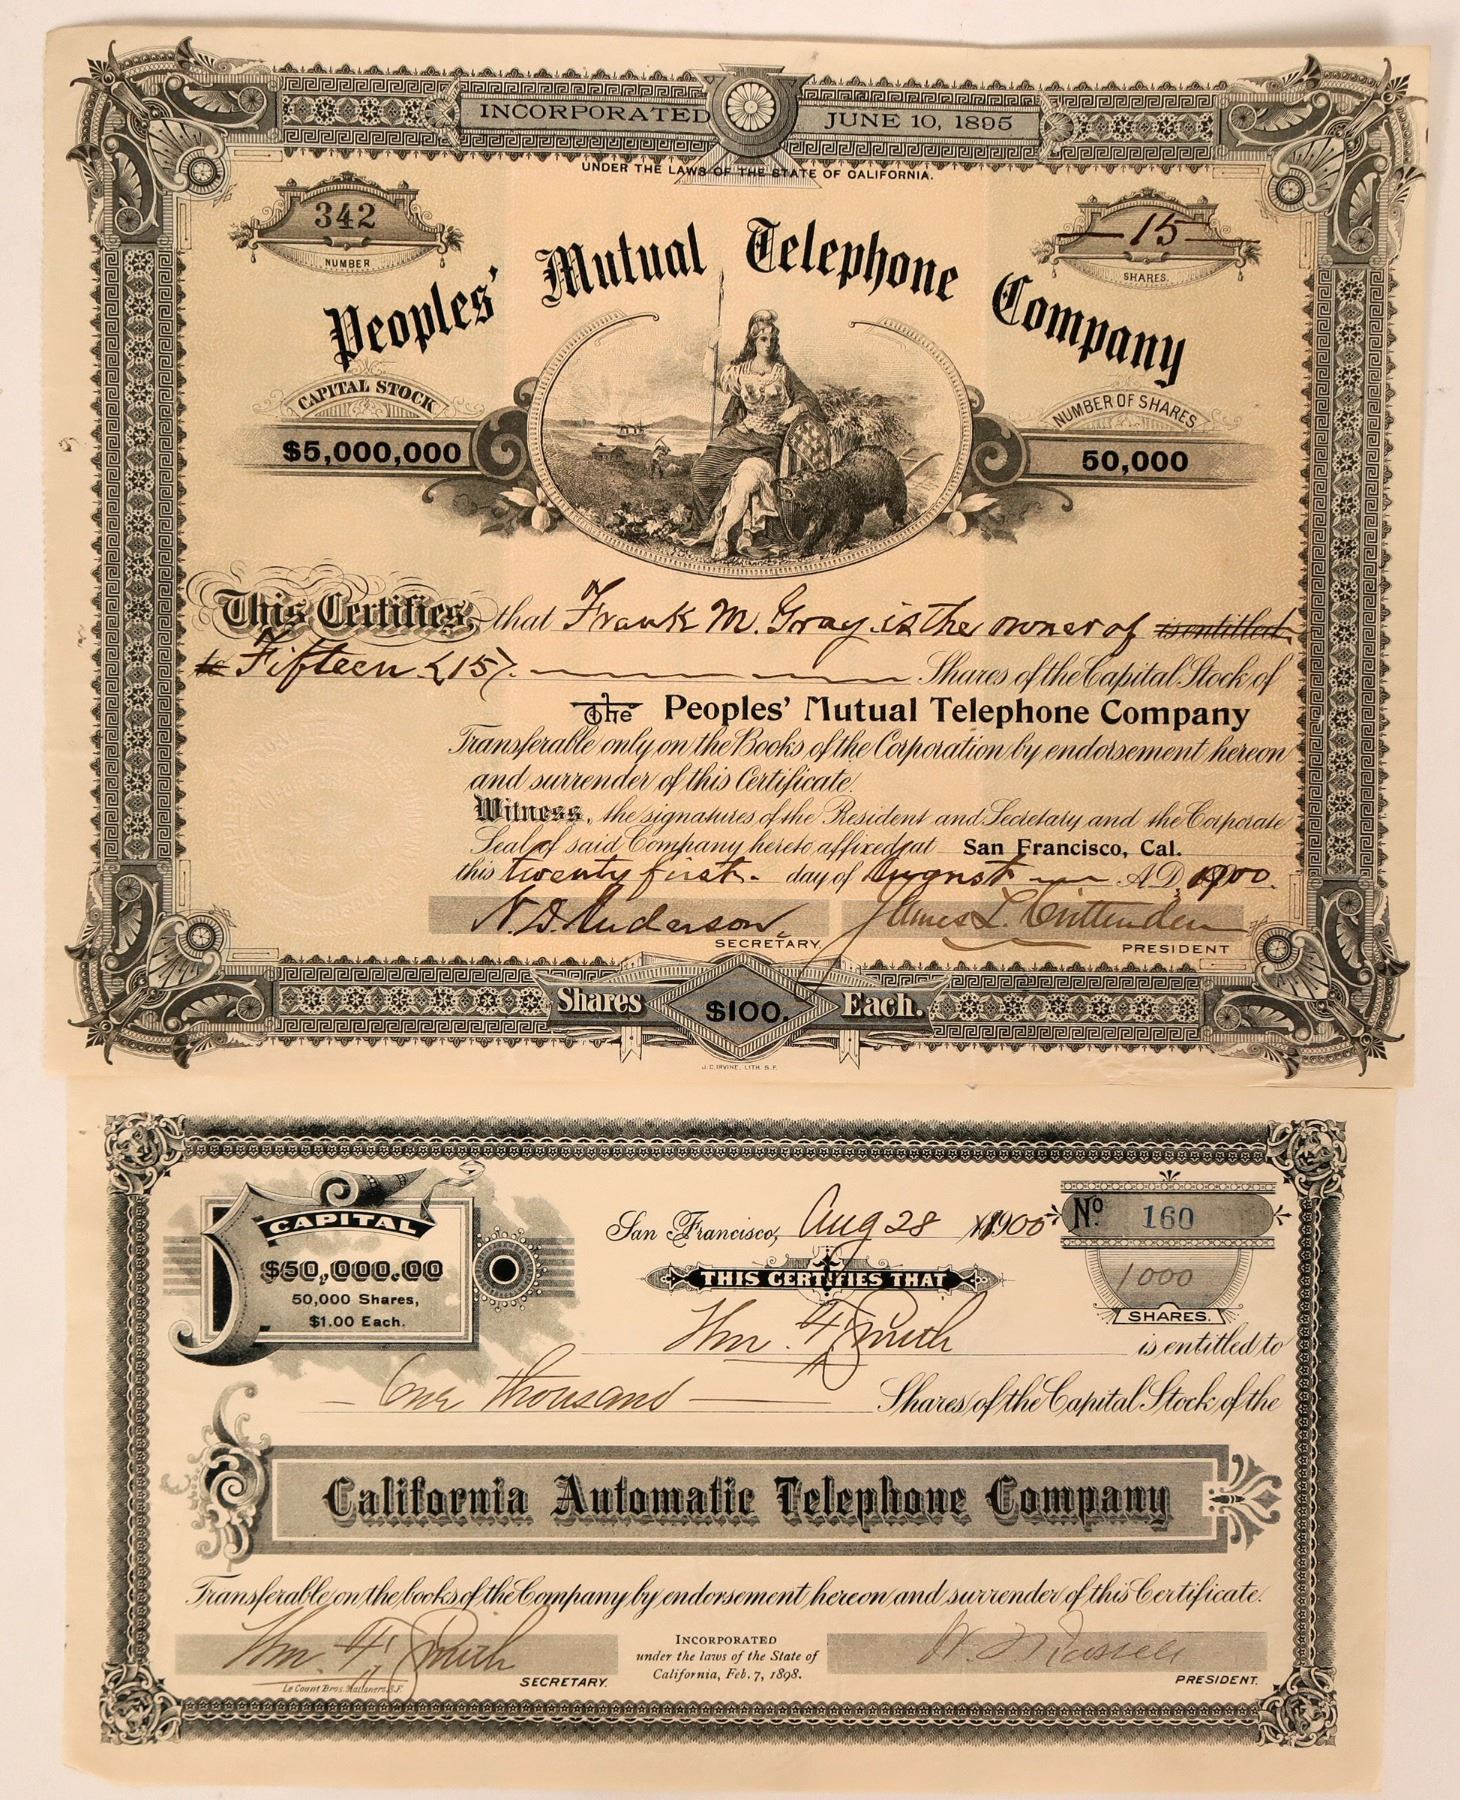 INCORPORATED JUNE 10, 1895
UNDER THE LAWS OF THE STATE OF CALIFORNIA.
342
NUMBER
15
SHARES.
Peoples' Mutual Telephone Company
CAPITAL STOCK
$5,000,000
NUMBER OF SHARES
50,000
This Certifies, that Frank M. Gray is the owner of is entitled
to Fifteen (15) Shares of the Capital Stock of
The Peoples' Mutual Telephone Company
Transferable only on the Books of the Corporation by endorsement hereon
and surrender of this Certificate.
Witness, the signatures of the President and Secretary and the Corporate
Seal of said Company hereto affixed at San Francisco, Cal.
this twenty first. day of August A.D. 1900.
N. D. Anderson. James L. Crittenden
SECRETARY. PRESIDENT
Shares $100. Each.
J. C. IRVINE, LITH. S. F.
CAPITAL
$50,000.00
50,000 Shares,
$1.00 Each.
San Francisco, Aug 28 1900
No. 160
THIS CERTIFIES THAT
1000
SHARES.
Wm. F. Smith is entitled to
One thousand Shares of the Capital Stock of the
California Automatic Telephone Company
Transferable on the books of the Company by endorsement hereon and surrender of this Certificate.
Wm. F. Smith
SECRETARY.
Le Count Bros. Stationers. S.F.
INCORPORATED
under the laws of the State of
California, Feb. 7, 1898.
Russell
PRESIDENT.